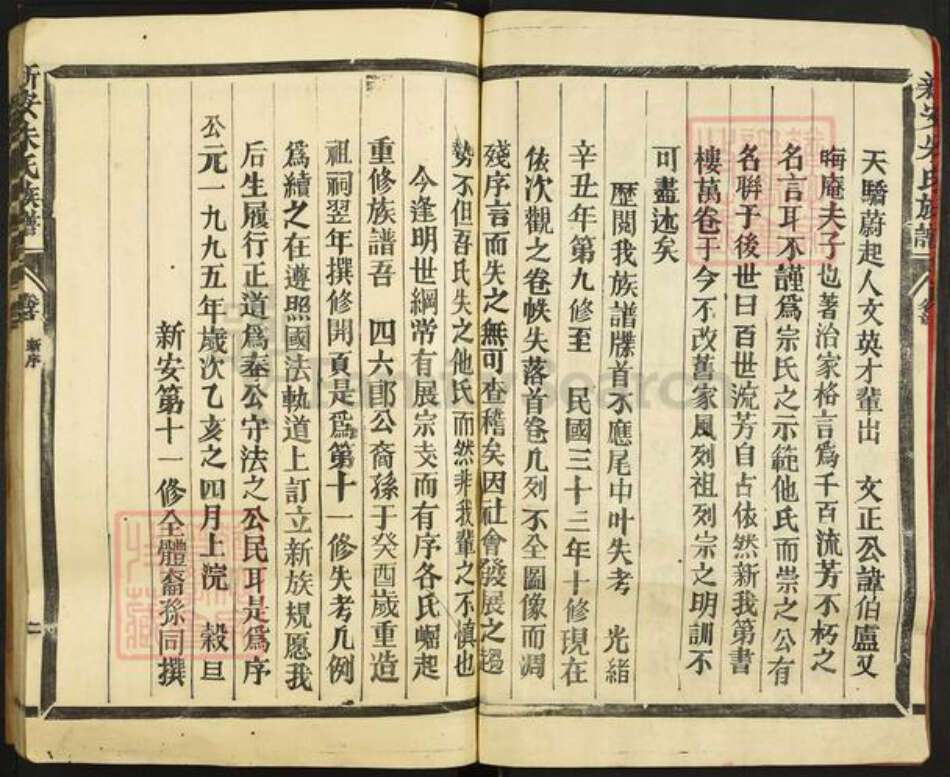 天驕蔚起人文英才輩出 文正公諱伯盧又
晦庵夫子也著治家格言爲千百流芳不朽之
名言耳不謹爲宗氏之示範他氏而崇之公有
名聨于後世曰百世流芳自占依然新我第書
樓萬卷于今不改舊家風列祖列宗之明訓不
可盡述矣
歷閱我族譜牒首不應尾中叶失考 光緒
辛丑年第九修至 民國三十三年十修現在
依次觀之卷帙失落首卷几列不全圖像而凋
殘序言而失之無可查稽矣因社會發展之趨
勢不但吾氏失之他氏而然非我輩之不慎也
今逢明世綱常有展宗支而有序各氏崛起
重修族譜吾 四六郎公裔孫于癸酉歲重造
祖祠翌年撰修開頁是爲第十一修失考几例
爲續之在遵照國法軌道上訂立新族規愿我
后生履行正道爲奉公守法之公民耳是爲序
公元一九九五年歲次乙亥之四月上浣 穀旦
新安第十一修全體裔孫同撰
新安朱氏族譜
卷首
新序
二